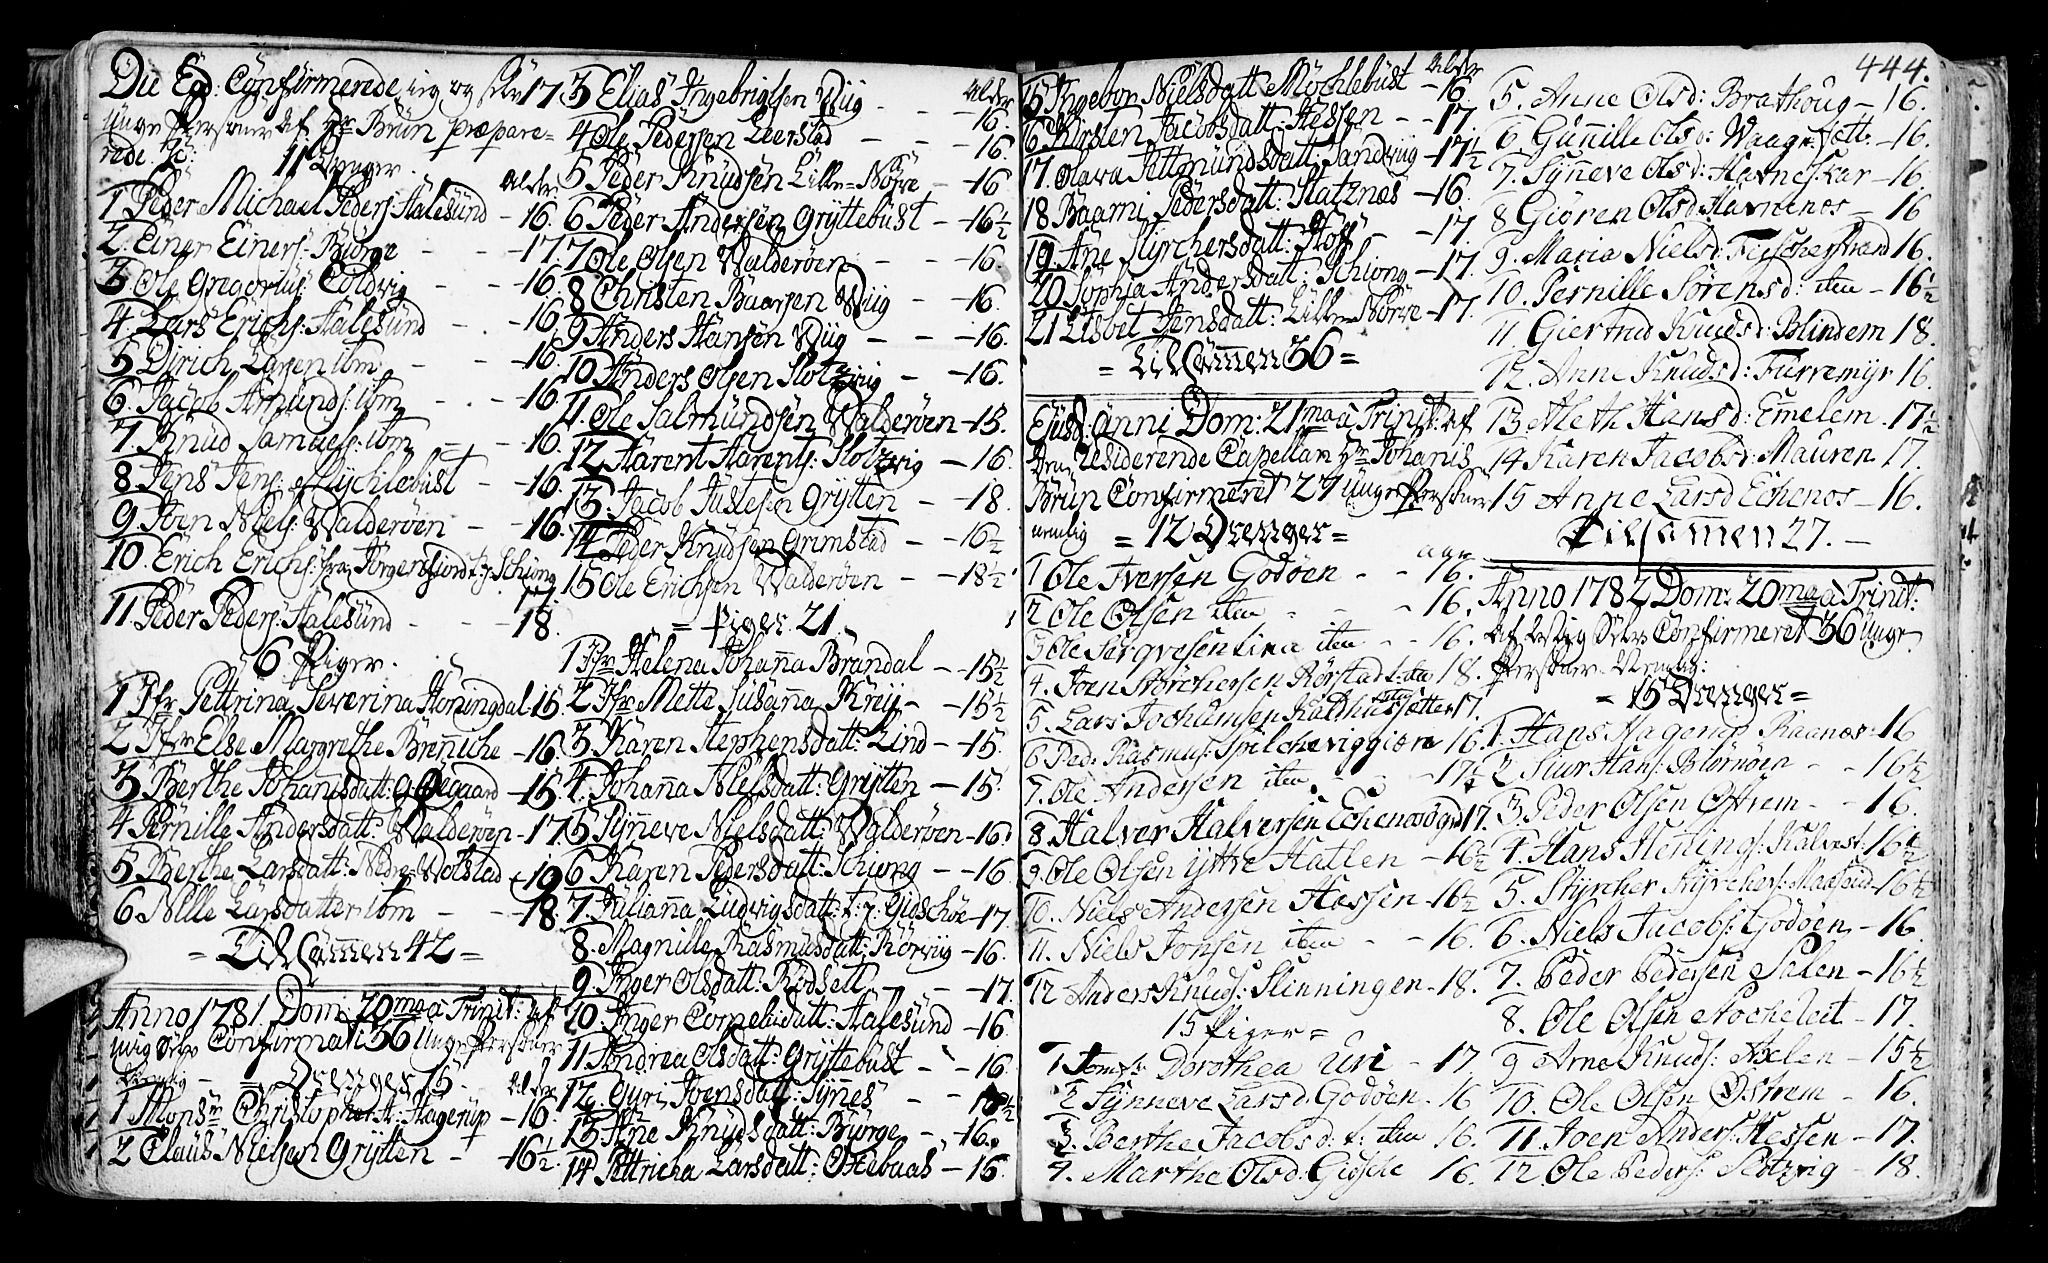 Die Eod: Confirmerede ieg og selv 17
unge Personer af Hr Brün præpare=
rede. 11 Drenger. Alder
1 Peder Michael Peders: Aalesund - 16.
2. Einer Einers: Biørge - - 17.
3 Ole Gregorius: Coldvig - - 16.
4 Lars Erichs: Aalesund - - 16
5 Dirich Larsen ibm - - 16.
6. Jacob Amunds: ibm - - 16.
7 Knud Samuels: ibm - - 16.
8 Jens Jens: Mychlebust - 16.
9 Joen Niels: Walderöen - - 16.
10. Erich Erichs: fra Jörgenfiord t: j: Schiong 17.
11 Peder Peders: Aalesund - - 18.
6 Piger.
1 Jfr Pettrina Severina Honingdal - 15.
2 Jfr Else Margrethe Brenniche - 16.
3 Berthe Johannisdatt: - 15.
4 Pernille Andersdatt: Walderöen - 17.
5 Berthe Larsdatt: Nedre Wolstad - 19
6 Nille Larsdatter ibm - - 18.
= Tilsammen 42 =
Anno 1781. Dom: 20ma a Trinit: af
mig Selv Confirmati 36 unge Personer
Nemlig - = Drenger 15 - Alder
1 Monsr Christopher H: Hagerup - 16.
2 Claus Nielsen Grytten - 16½.
3 Elias Ingebrigtsen Wiig - - 16. Alder
4 Ole Pedersen Leerstad - - 16.
5 Peder Knudsen Lille=Nörve - 16
6 Peder Andersen Gryttebust - 16½
7 Ole Olsen Walderöen - - 16.
8 Christen Baarsen Wiig - - 16.
9 Anders Hansen Wiig - - 16.
10 Anders Olsen Slotzvig - - 16.
11. Ole Salmundsen Walderöen - 15.
12 Harent Harents: Slotzvig - 16.
13 Jacob Justesen Grytten - - 18
14 Peder Knudsen Grimstad - - 16½
15 Ole Erichsen Walderöen - - 18½
= Piger 21.
1 Jfr Helena Johanna Brandal - 15½
2 Jfr Mette Susanna Krüg - - 15½
3 Karen Stephensdatt: Lind - - 15.
4. Johanna Nielsdatt: Grytten - 15.
5 Synneve Nielsdatt: Walderöen - 16.
6 Karen Pedersdatt: Schiong - - 16.
7. Julianna Ludvigsdatt: t: j: Gidschöe - 17.
8. Magnille Rasmusdatt: Rörviig - 16.
9 Inger Olsdatt: Rödsett - - 17.
10. Inger Cornelidatt: Aalesund - 16.
11 Andrea Olsdatt: Gryttebust - - 16.
12. Gyri Joensdatt: Synes - -
13 Ane Knudsdatt: Biörge - 16.
14 Pettricha Larsdatt: Oxebaas - 16.
15 Ingebor Nielsdatt: Möchlebust - 16. Alder
16 Kirsten Jacobsdatt: Hessen - - 17.
17. Olava Pettmundsdatt: Sandviig - 17½
18 Baarni Pedersdatt: Statznæs - 16.
19. Ane Styrchersdatt: Hoff - - 17
20 Sophia Andersdatt: Schiong - 17.
21 Lisbet Jensdatt: Lille Nörve - 17.
= Tilsammen 36 =
Ejusd: anni Dom: 21ma a Trinit: af
den residerende Capellan Hr Johanis
Brün Confirmeret 27 unge Personer
nemlig = 12 Drenger =
1 Ole Iversen Godöen - - 16.
2 Ole Olsen item - - 16.
3 Ole item - - 16.
4. Joen Störchersen Rörstad t: item 18.
5. Lars Jochumsen Kaldhussætter 17.
6 Ped: Rasmus: Spilcheviggien 16.
7. Ole Andersen item - - 17½
8 Halver Halversen Echenosögrd 17.
9. Ole Olsen ijttre Hatlen - 16½
10. Niels Andersen Hessen - 16½
11. Niels Jonsen item - - 16.
12 Anders Knuds: Slinningen - 18.
15 Piger =
1 Jomf: Dorothea Uri - 17.
2 Synneve Larsd: Godöen - 16
3. Berthe Jacobsd: t: item 16.
4. Marthe Olsd: Gidsche 16.
444.
5. Anne Olsd: Brathoug - 16.
6. Gunnille Olsd: Waagesætt: - 16.
7. Synneve Olsd: Havneskar - 16.
8 Giören Olsd: Havnenos - 16
9. Maria Nielsd: Fischerstrand 16.
10. Pernille Sörensd: item - 16½
11. Giertrud Knudsd: Blindem 18.
12. Anne Knudsd: Furremyr 16.
13 Meth Hansd: Emelem. 17½
14 Karen Jacobsd: Mauren 17.
15 Anne Larsd Echenos - 16.
Tilsamen 27. -
Anno 1782 Dom: 20ma a Trinit:
af Mig Selv Confirmeret 36 unge
Personer Nemlig:
= 15 Drenger =
1. Hans Hagerup Raanæs - 16
2 Siur Hans: Blörnöen - - 16½
3. Peder Olsen Östrem - - 16.
4. Hans Henings: Kalvest: 16½
5. Styrcher Styrchers: Maaseid - 16½
6. Niels Jacobs: Godöen - 16.
7. Peder Pedersen Salen - 16½
8. Ole Olsen Nocheleit - 17.
9 Arne Knuds: - 15½
10. Ole Olsen Östrem - 16.
11. Joen Anders: Hessen - 17.
12. Ole Peders: Slotzvig - 18.